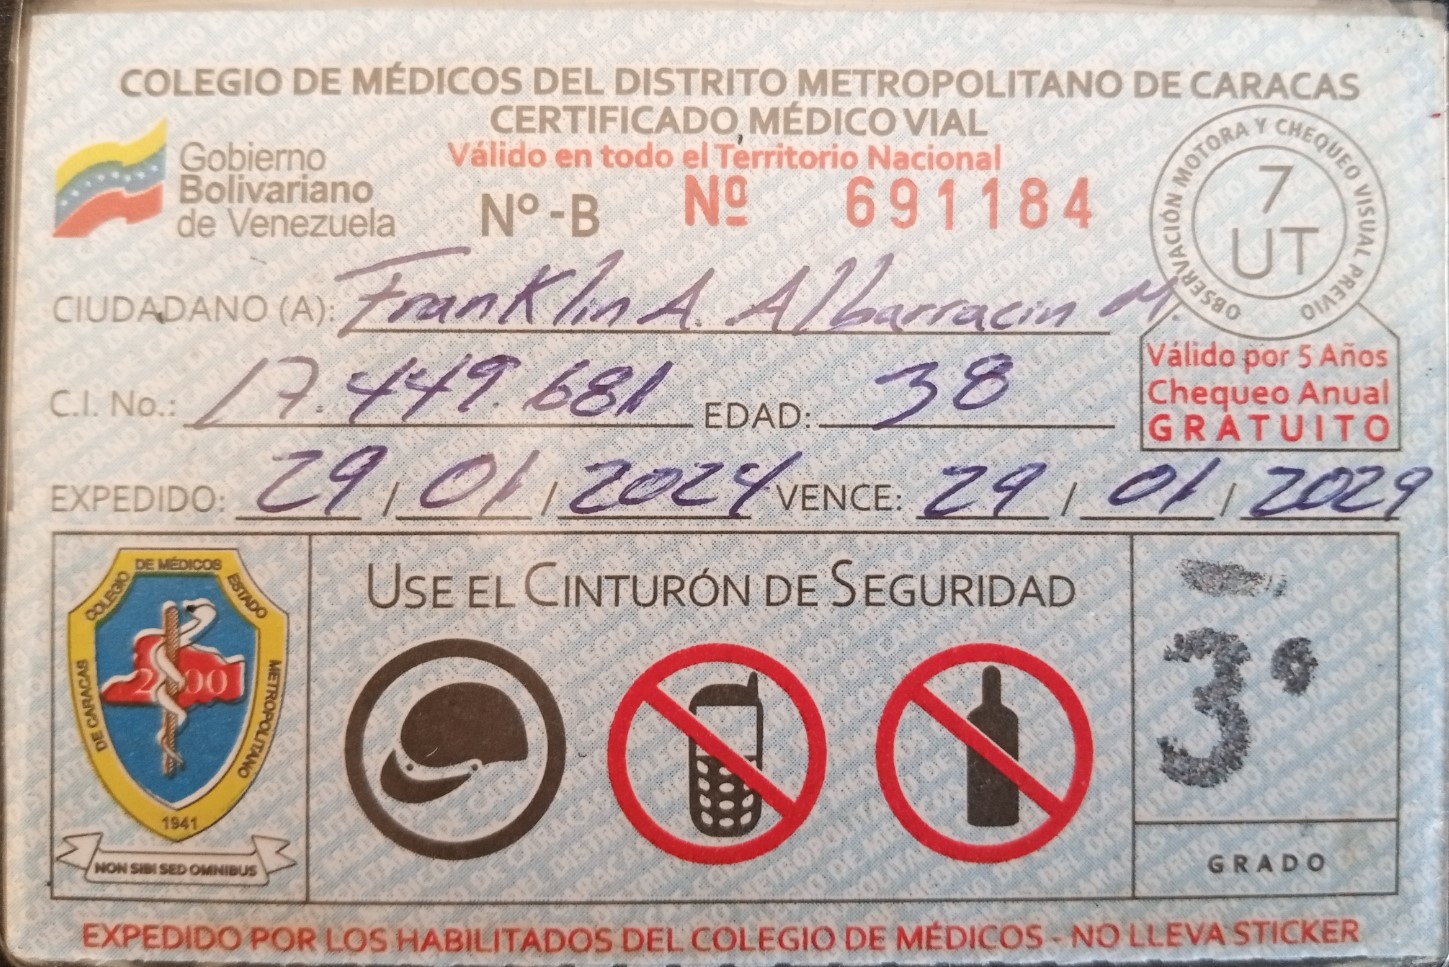 COLEGIO DE MÉDICOS DEL DISTRITO METROPOLITANO DE CARACAS
CERTIFICADO MÉDICO VIAL
Válido en todo el Territorio Nacional
Gobierno
Bolivariano
de Venezuela
Nº-B Nº 691184
OBSERVACIÓN MOTORA Y CHEQUEO VISUAL PREVIO
7
UT
CIUDADANO (A): Franklin A. Albarracin M.
Válido por 5 Años
Chequeo Anual
GRATUITO
C.I. No.: 17.449.681 EDAD: 38
EXPEDIDO: 29 / 01 / 2024 VENCE: 29 / 01 / 2029
COLEGIO DE MÉDICOS ESTADO
METROPOLITANO
DE CARACAS
2000
1941
NON SIBI SED OMNIBUS
USE EL CINTURÓN DE SEGURIDAD
3º
GRADO
EXPEDIDO POR LOS HABILITADOS DEL COLEGIO DE MÉDICOS - NO LLEVA STICKER